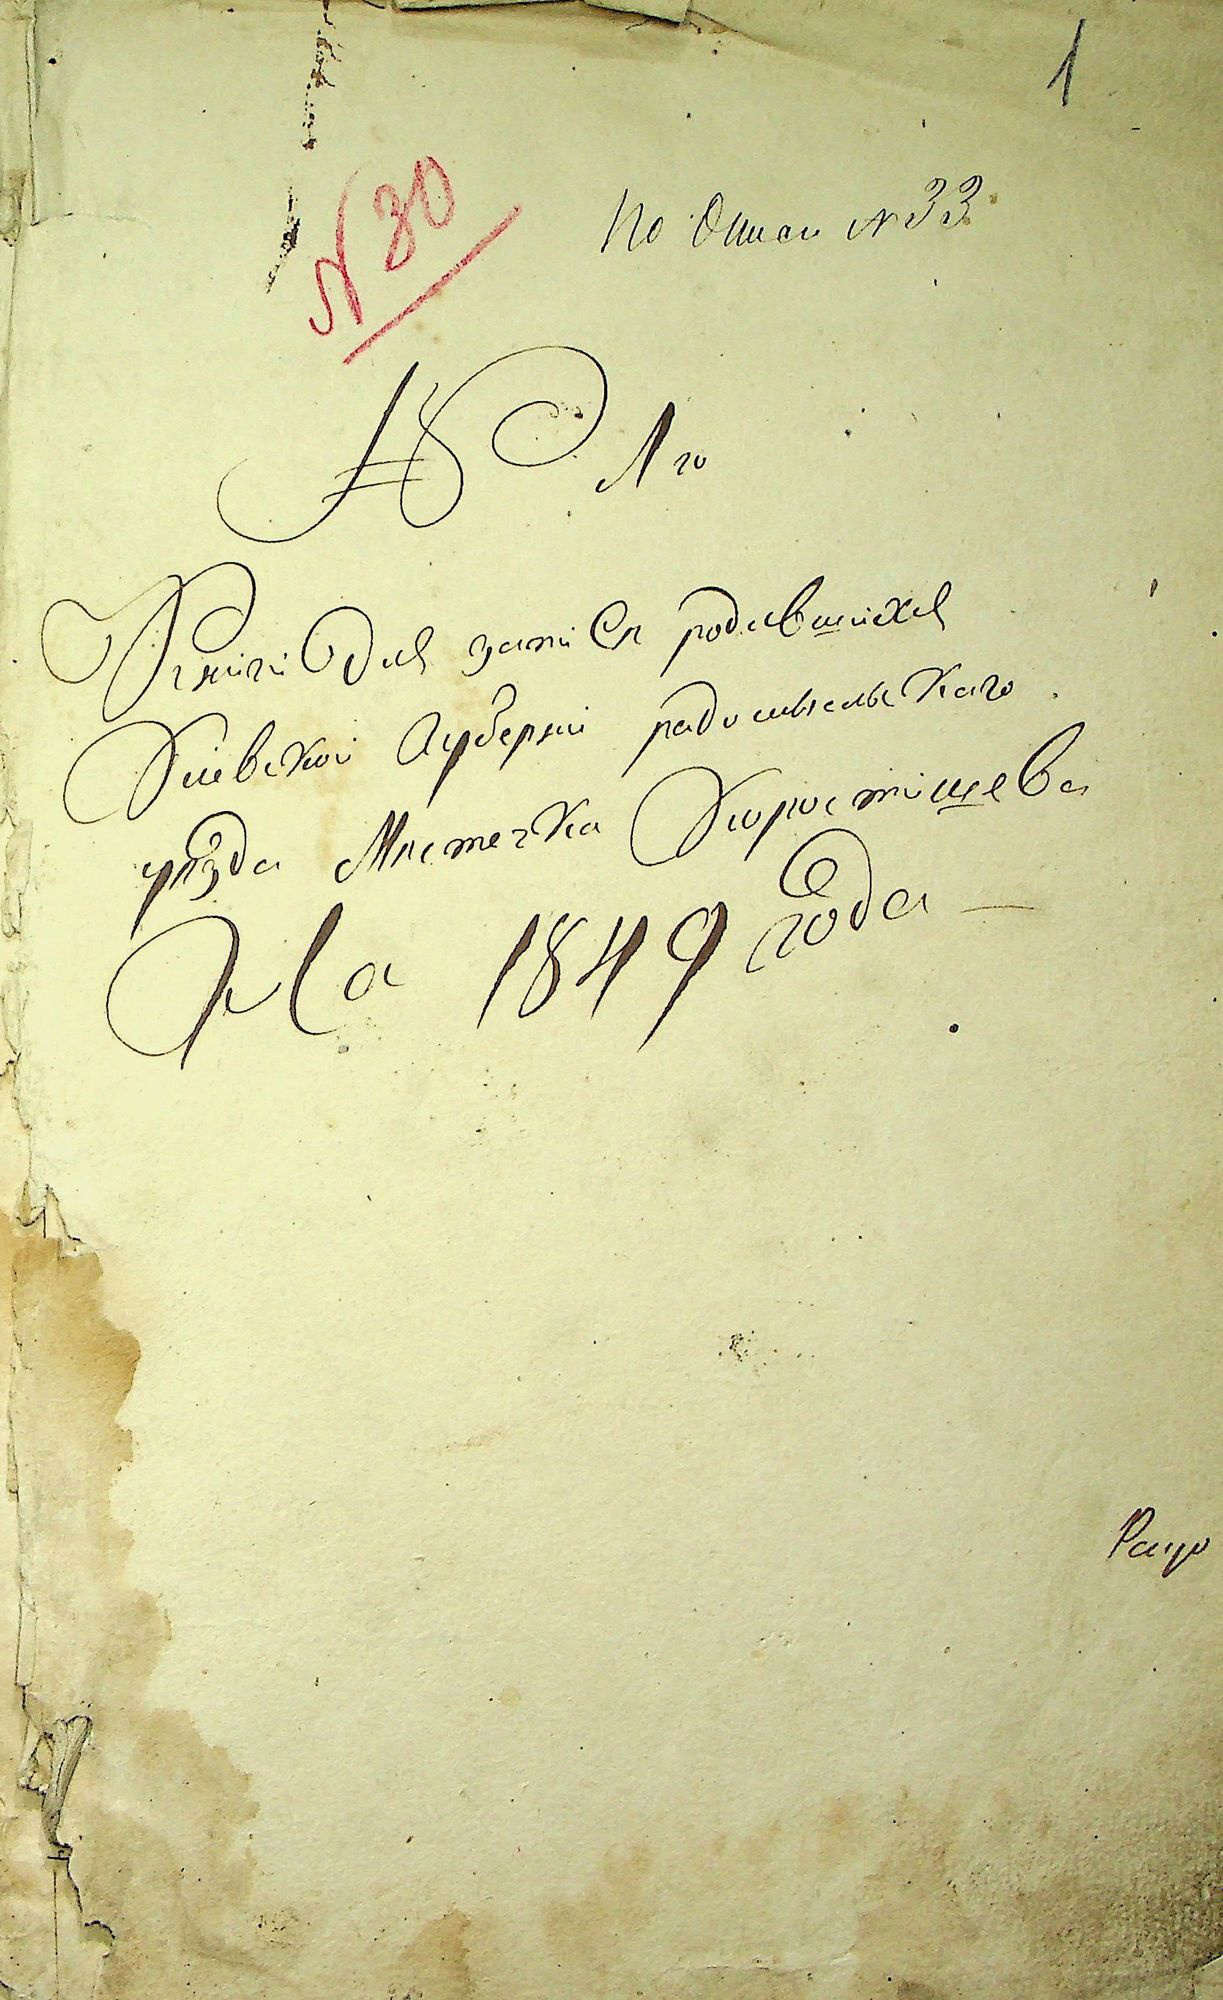 1
№ 30
По Описи № 33
№ 1го
Книги для записи родившихся
Киевской Губернии радомысльскаго
уѣзда Мѣстечка Коростишева
На 1849 года